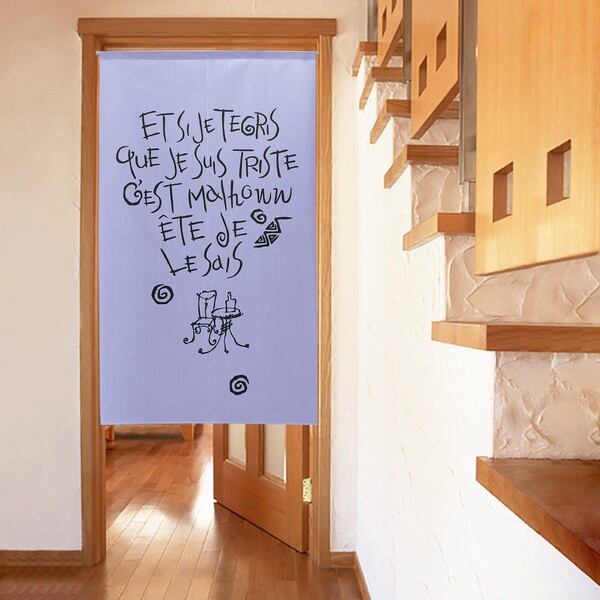 ET SI JE TEGRIS
QUE JE SUIS TRISTE
C'EST MALHONNW
ÊTE JE
LE SAIS